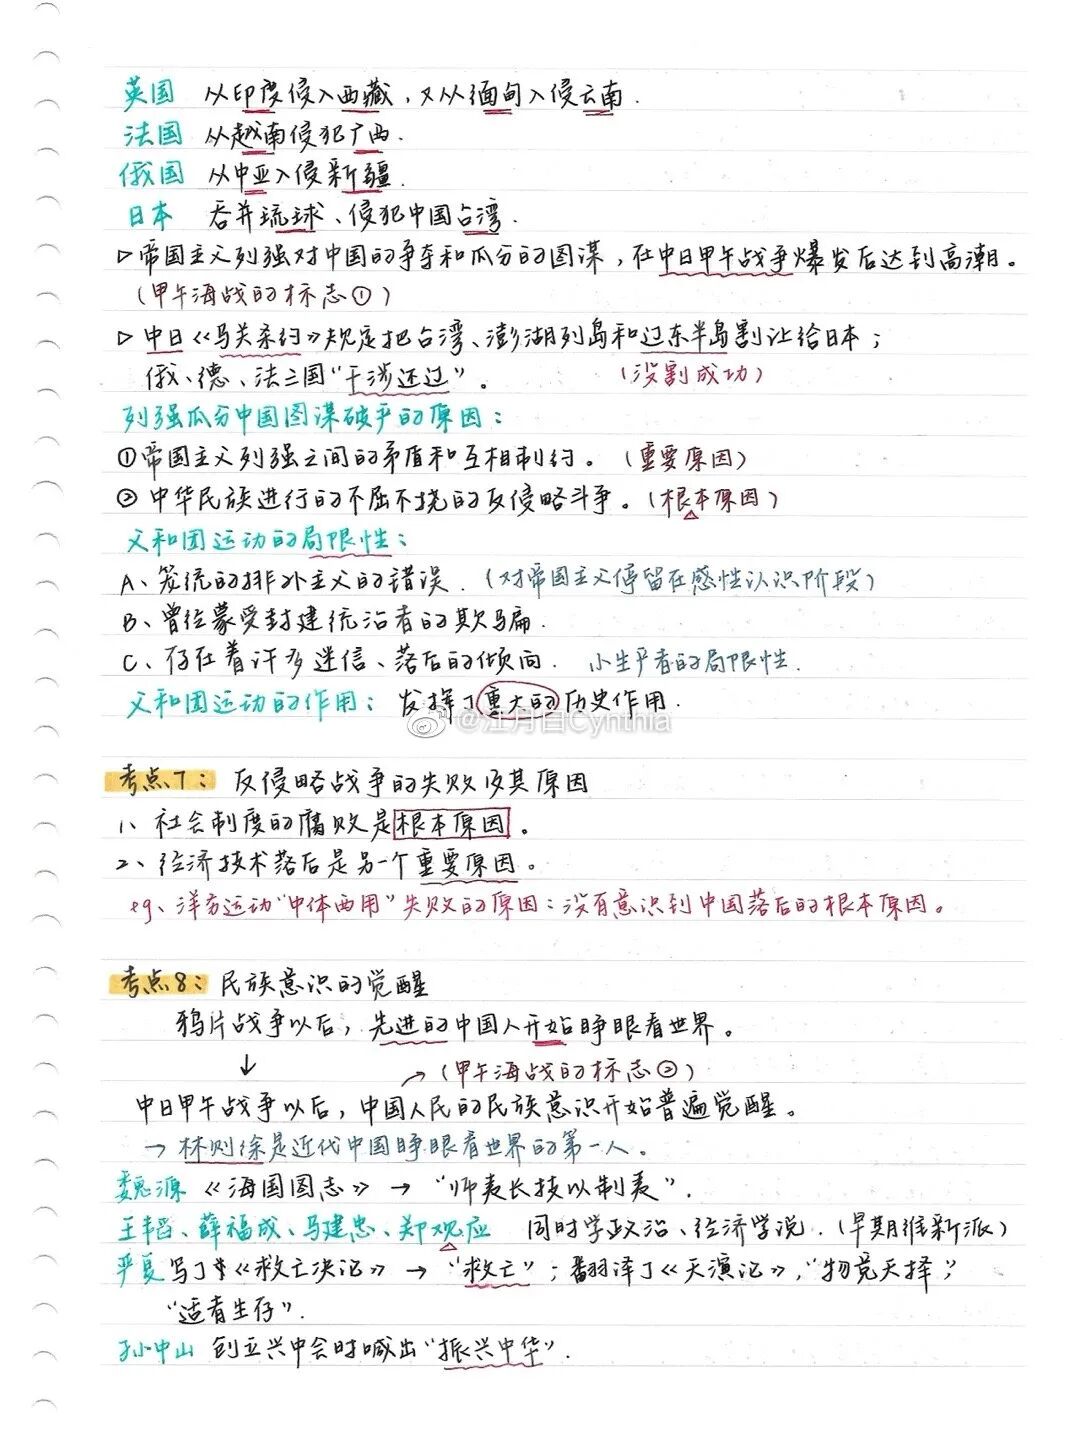 英国 从印度侵入西藏，又从缅甸入侵云南．
法国 从越南侵犯广西．
俄国 从中亚入侵新疆．
日本 吞并琉球、侵犯中国台湾．
▷帝国主义列强对中国的争夺和瓜分的图谋，在中日甲午战争爆发后达到高潮。
（甲午海战的标志①）
▷中日《马关条约》规定把台湾、澎湖列岛和辽东半岛割让给日本；
俄、德、法三国“干涉还辽”。（没割成功）
列强瓜分中国图谋破产的原因：
①帝国主义列强之间的矛盾和互相制约。（重要原因）
②中华民族进行的不屈不挠的反侵略斗争。（根本原因）
义和团运动的局限性：
A、笼统的排外主义的错误．（对帝国主义停留在感性认识阶段）
B、曾经蒙受封建统治者的欺骗．
C、存在着许多迷信、落后的倾向． 小生产者的局限性．
义和团运动的作用：发挥了重大的历史作用．
@江月白Cynthia
考点7：反侵略战争的失败及其原因
1、社会制度的腐败是根本原因。
2、经济技术落后是另一个重要原因。
eg、洋务运动“中体西用”失败的原因：没有意识到中国落后的根本原因。
考点8：民族意识的觉醒
鸦片战争以后，先进的中国人开始睁眼看世界。
↓ →（甲午海战的标志②）
中日甲午战争以后，中国人民的民族意识开始普遍觉醒。
→林则徐是近代中国睁眼看世界的第一人。
魏源《海国图志》→“师夷长技以制夷”．
王韬、薛福成、马建忠、郑观应 同时学政治、经济学说．（早期维新派）
严复写了《救亡决论》→“救亡”；翻译了《天演论》，“物竞天择”，
“适者生存”．
孙中山 创立兴中会时喊出“振兴中华”．